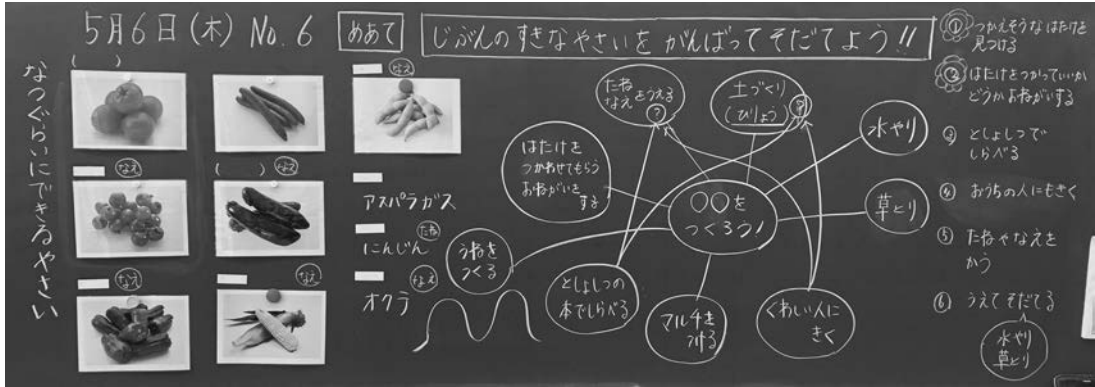 5月6日(木) No.6
めあて
じぶんのすきなやさいを がんばってそだてよう!!
なつぐらいにできるやさい
( )
なえ
なえ
( )
なえ
なえ
なえ
なえ
アスパラガス
たね
にんじん
なえ
オクラ
たね
なえをうえる
?
土づくり
(ひりょう)
?
水やり
はたけを
つかわせてもらう
おねがいを
する
○○を
つくろう!
草とり
うねを
つくる
としょしつの
本でしらべる
マルチを
つける
くわしい人に
きく
① つかえそうなはたけを
見つける
② はたけをつかっていいか
どうかおねがいする
③ としょしつで
しらべる
④ おうちの人にもきく
⑤ たねやなえを
かう
⑥ うえてそだてる
水やり
草とり